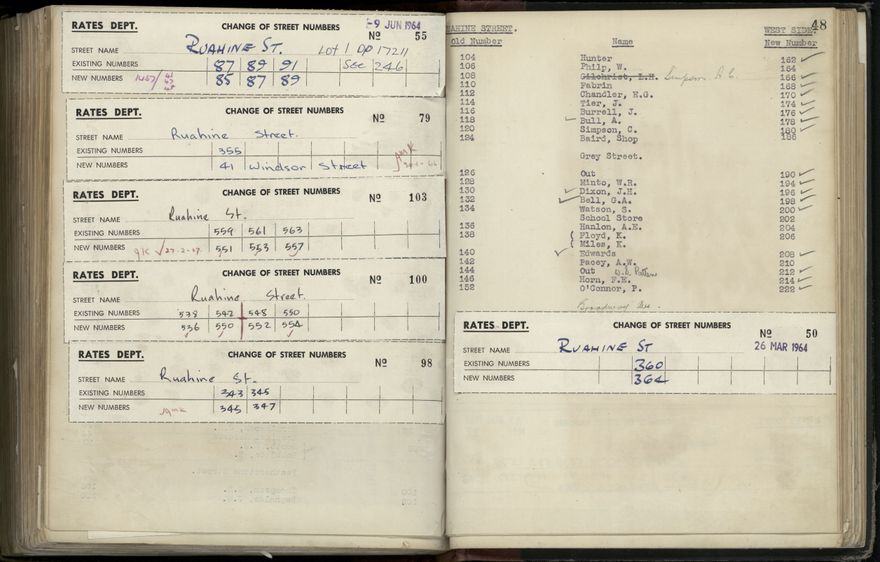 RATES DEPT. CHANGE OF STREET NUMBERS -9 JUN 1964
No 55
STREET NAME RUAHINE ST. Lot 1 DP 17211
EXISTING NUMBERS 87 89 91 See 246
NEW NUMBERS 85 87 89
RATES DEPT. CHANGE OF STREET NUMBERS
No 79
STREET NAME Ruahine Street.
EXISTING NUMBERS 355
NEW NUMBERS 41 Windsor Street
RATES DEPT. CHANGE OF STREET NUMBERS
No 103
STREET NAME Ruahine St.
EXISTING NUMBERS 559 561 563
NEW NUMBERS 551 553 557
RATES DEPT. CHANGE OF STREET NUMBERS
No 100
STREET NAME Ruahine Street.
EXISTING NUMBERS 538 542 548 550
NEW NUMBERS 536 550 552 554
RATES DEPT. CHANGE OF STREET NUMBERS
No 98
STREET NAME Ruahine St.
EXISTING NUMBERS 343 345
NEW NUMBERS 345 347
48
AHINE STREET. WEST SIDE.
Old Number Name New Number
104 Hunter 162
106 Philp, W. 164
108 Gilchrist, L.H. Simpson 166
110 Fabrin 168
112 Chandler, H.G. 170
114 Tier, J. 174
116 Burrell, J. 176
118 Bull, A. 178
120 Simpson, C. 180
124 Baird, Shop 186
Grey Street.
126 Out 190
128 Minto, W.R. 194
130 Dixon, J.H. 196
132 Bell, G.A. 198
134 Watson, S. 200
School Store 202
136 Hanlon, A.E. 204
138 Floyd, K. 206
Miles, K.
140 Edwards 208
142 Pacey, A.W. 210
144 Out 212
146 Horn, F.E. 214
152 O'Connor, P. 222
Broadway Ave.
RATES DEPT. CHANGE OF STREET NUMBERS
No 50
STREET NAME RUAHINE ST 26 MAR 1964
EXISTING NUMBERS 360
NEW NUMBERS 364